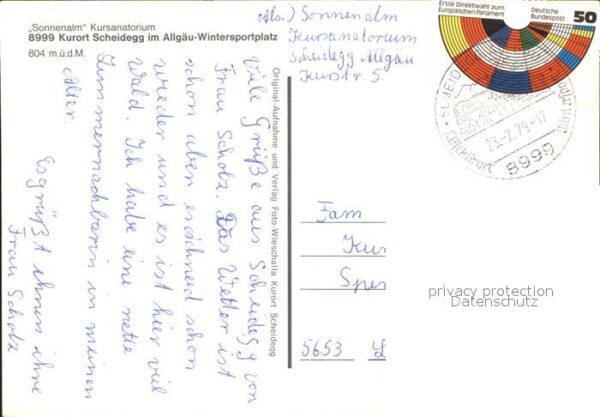 „Sonnenalm" Kursanatorium
8999 Kurort Scheidegg im Allgäu-Wintersportplatz
804 m.ü.d.M.
Abs.) Sonnenalm
Kursanatorium
Scheidegg Allgäu
Kurstr. 5
Erste Direktwahl zum
Europäischen Parlament
Deutsche
Bundespost
50
23.-7.79-17
8999
viele Grüße aus Scheidegg von
Frau Scholz. Das Wetter ist
schon aber es schneid schon
wieder und es ist hier viel
Wald. Ich habe eine nette
Zimmernachbarin in meinen
Alter.
Es grüßt ihnen ihre
Frau Scholz
Original-Aufnahme und Verlag Foto-Wieschalla Kurort Scheidegg
Fam
Kur
Spes
5653 L
privacy protection
Datenschutz